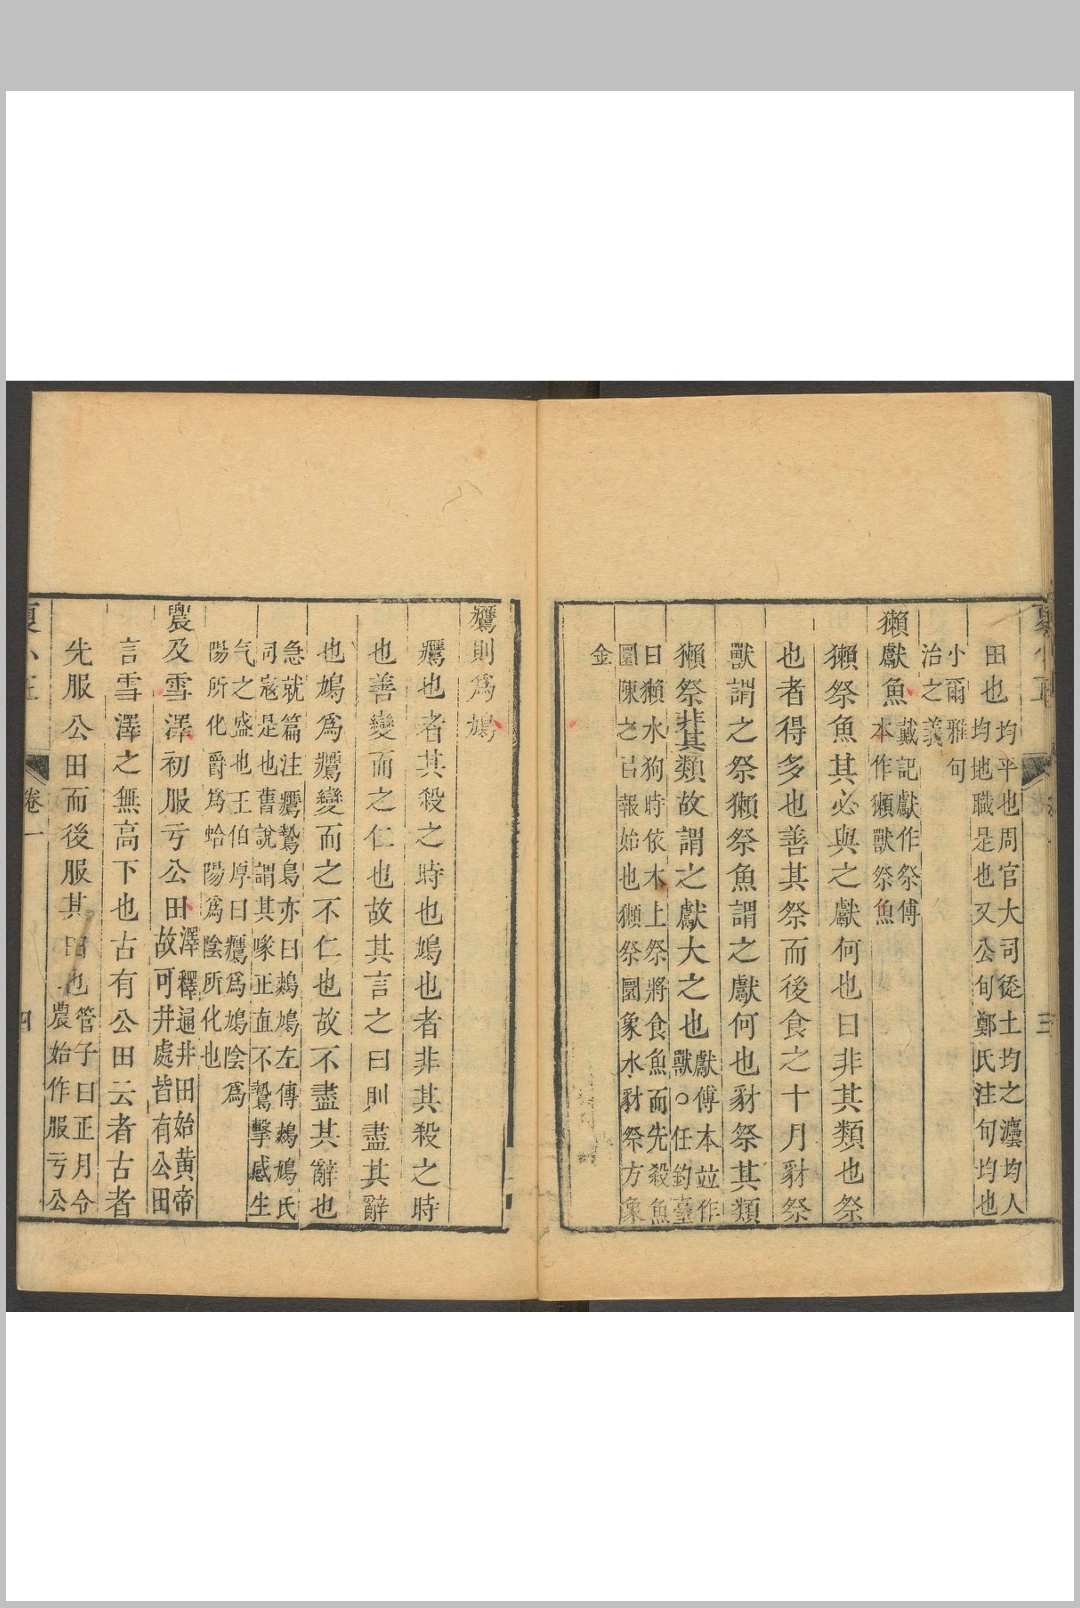 夏小正
三
田也均平也周官大司徒土均之灋均人
均地職是也又公旬鄭氏注旬均也
小爾雅旬
治之義
獺獻魚戴記獻作祭傅
本作獺獸祭魚
獺祭魚其必與之獻何也曰非其類也祭
也者得多也善其祭而後食之十月豺祭
獸謂之祭獺祭魚謂之獻何也豺祭其類
獺祭非其類故謂之獻大之也獻傅本竝作
獸○任釣臺
曰獺水狗時依木上祭將食魚而先殺魚
圜陳之㠯報始也獺祭圜象水豺祭方象
金
鷹則為鳩
鷹也者其殺之時也鳩也者非其殺之時
也善變而之仁也故其言之曰則盡其辭
也鳩為鷹變而之不仁也故不盡其辭也
急就篇注鷹鷙鳥亦曰鷞鳩左傳鷞鳩氏
司寇是也舊說謂其喙正直不鷙擊感生
气之盛也王伯厚曰鷹為鳩陰為
陽所化爵為蛤陽為陰所化也
農及雪澤初服亏公田澤釋通井田始黄帝
故可井處皆有公田
言雪澤之無高下也古有公田云者古者
先服公田而後服其田也管子曰正月令
農始作服亏公
夏小正
卷一
四